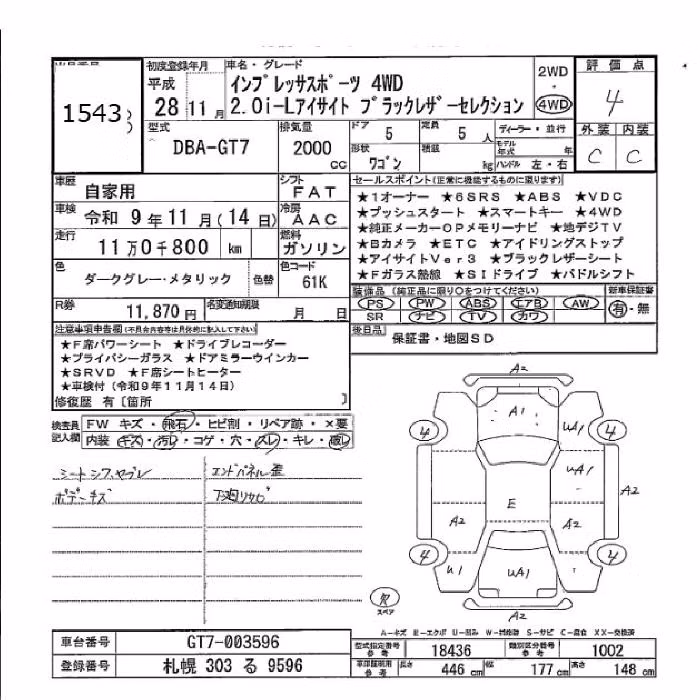 1543
初度登録年月
平成
28 11 月
車名・グレード
インプレッサスポーツ 4WD
2.0i-Lアイサイト ブラックレザーセレクション
2WD
・
4WD
評価点
4
外装 内装
C C
型式
DBA-GT7
排気量
2000
cc
ドア
5
定員
5 人
形状
ワゴン
積載
kg
ディーラー・並行
モデル年式 年
ハンドル 左・右
車歴
自家用
シフト
FAT
車検
令和 9年11月(14日)
冷房
AAC
走行
11万0千800 km
燃料
ガソリン
色
ダークグレー・メタリック
色替
色コード
61K
R券
11,870円
名変通知期限
月 日
セールスポイント(正常に機能するものに限ります)
★1オーナー ★6SRS ★ABS ★VDC
★プッシュスタート ★スマートキー ★4WD
★純正メーカーOPメモリーナビ ★地デジTV
★Bカメラ ★ETC ★アイドリングストップ
★アイサイトVer3 ★ブラックレザーシート
★Fガラス熱線 ★SIドライブ ★パドルシフト
装備品(純正品に限り○をつけてください)
新車保証書
PS PW ABS エアB AW
SR ナビ TV カワ
有・無
後日品
保証書・地図SD
注意事項申告欄(不具合内容等は具体的に記入して下さい)
★F席パワーシート ★ドライブレコーダー
★プライバシーガラス ★ドアミラーウインカー
★SRVD ★F席シートヒーター
★車検付(令和9年11月14日)
修復歴 有〔箇所 〕
検査員記入欄
FW キズ・飛石・ヒビ割・リペア跡・×要
内装 キズ・汚レ・コゲ・穴・スレ・キレ・臭し
シートシワ、ヤブレ
ボデーキズ
エンドパネル歪
下廻りサビ
A2
A1
4
4
UA1
UA1
A2
E
A2
A2
4
4
U1
UA1
A2
スペア
A-キズ E-エクボ U-凹み W-補修跡 S-サビ C-腐食 XX-交換済
車台番号
GT7-003596
登録番号
札幌 303 る 9596
型式指定番号
参考
18436
類別区分番号
参考
1002
車庫証明用
参考
長さ
446 cm
幅
177 cm
高さ
148 cm